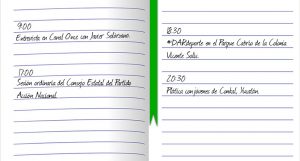 9:00
Entrevista en Canal Once con Javier Solorzano.
17:00
Sesión ordinaria del Consejo Estatal del Partido
Acción Nacional.
18:30
#DARdeporte en el Parque Cabrio de la Colonia
Vicente Solis.
20:30
Plática con jovenes de Conkal, Yucatán.